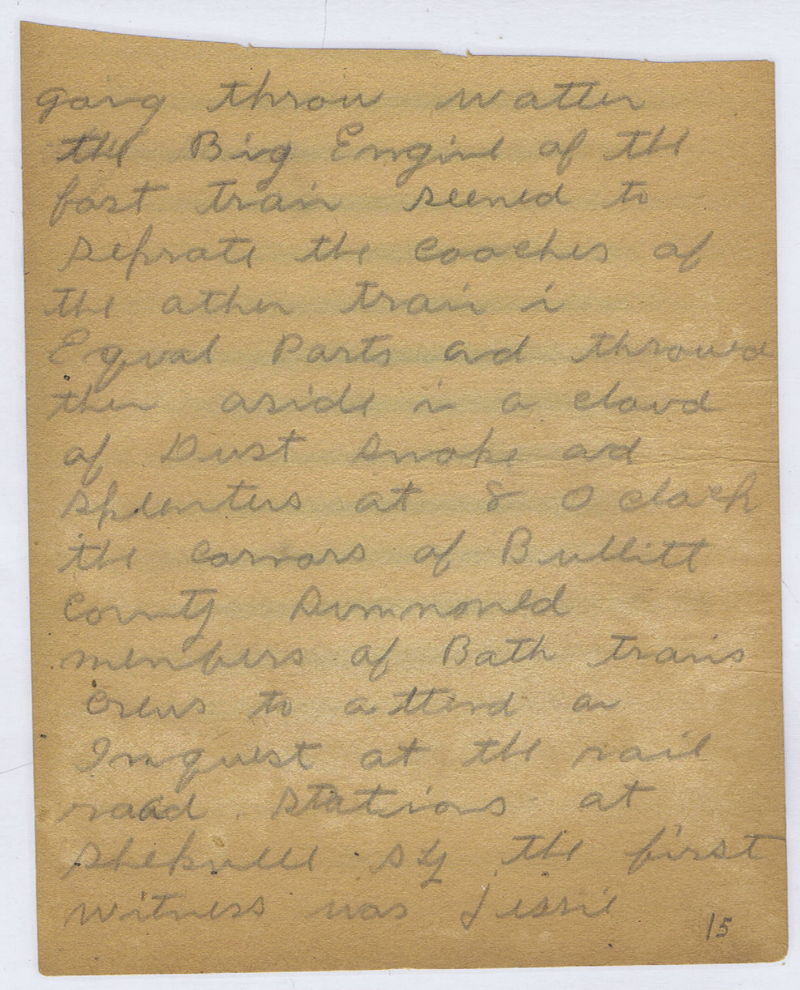 gong throw watter
the Big Engine of the
fast train seemed to
seprate the Cooches of
the other train i
Equal Parts ad throwed
then aside in a cloud
of Dust Smoke ad
splenters at 8 O clock
the cornors of Bullitt
County Summoned
members of Both trains
crews to attend an
Inquest at the rail
raod stations at
the first
witness was Jessie
15